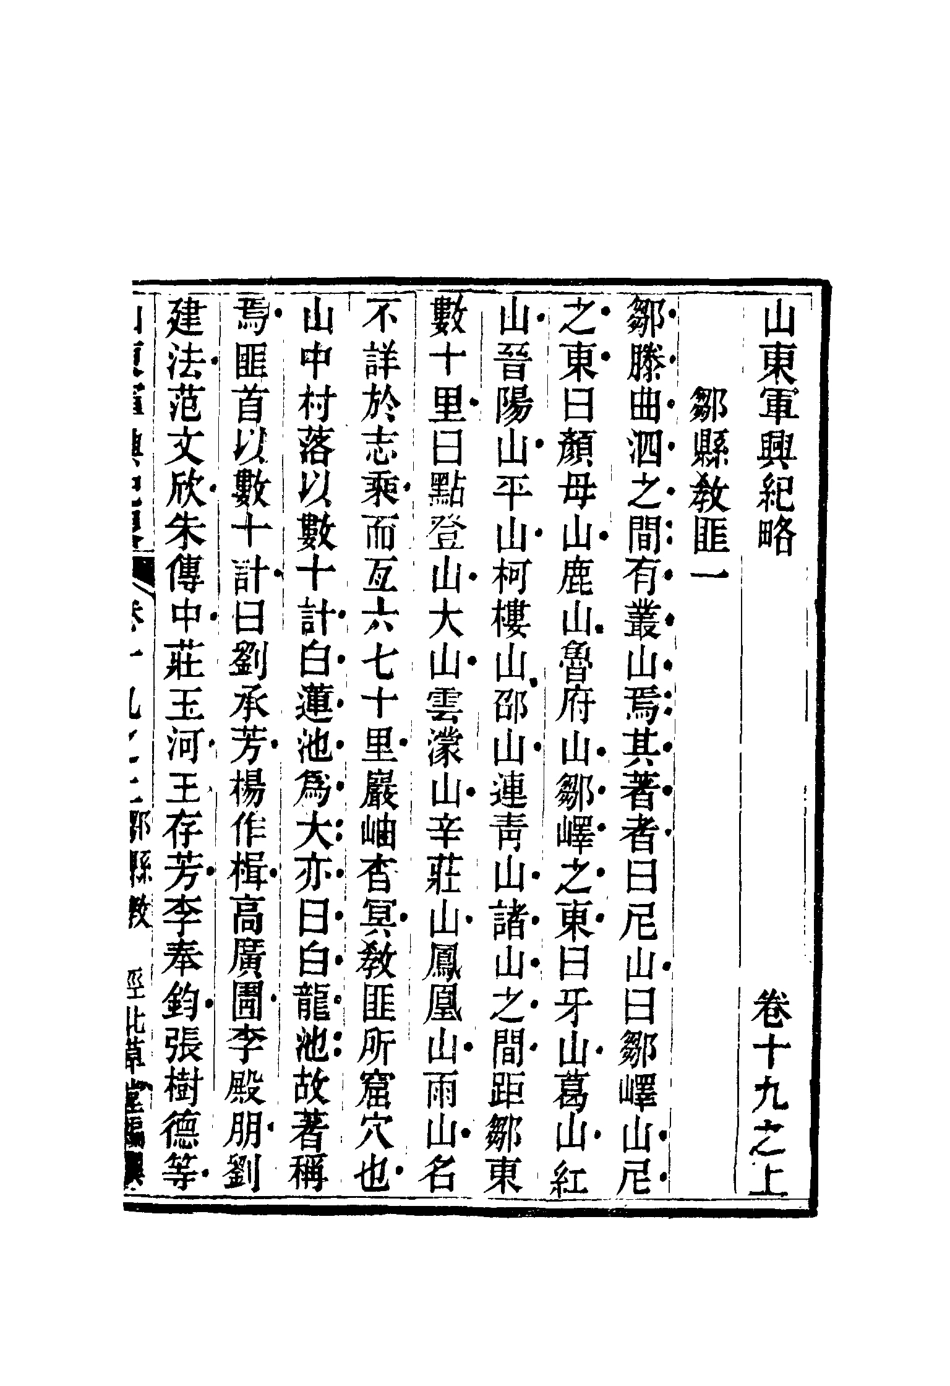 山東軍興紀略 卷十九之上
鄒縣教匪一
鄒滕曲泗之間有叢山焉其著者曰尼山曰鄒嶧山尼
之東曰顏母山鹿山魯府山鄒嶧之東曰牙山葛山紅
山晉陽山平山柯樓山邵山連青山諸山之間距鄒東
數十里曰點登山大山雲濛山辛莊山鳳凰山雨山名
不詳於志乘而亙六七十里巖岫杳冥教匪所窟穴也
山中村落以數十計白蓮池爲大亦曰白龍池故著稱
焉匪首以數十計曰劉承芳楊作楫高廣圊李殿朋劉
建法范文欣朱傳中莊玉河王存芳李奉鈞張樹德等
山東軍興紀略 卷十九之上 鄒縣教